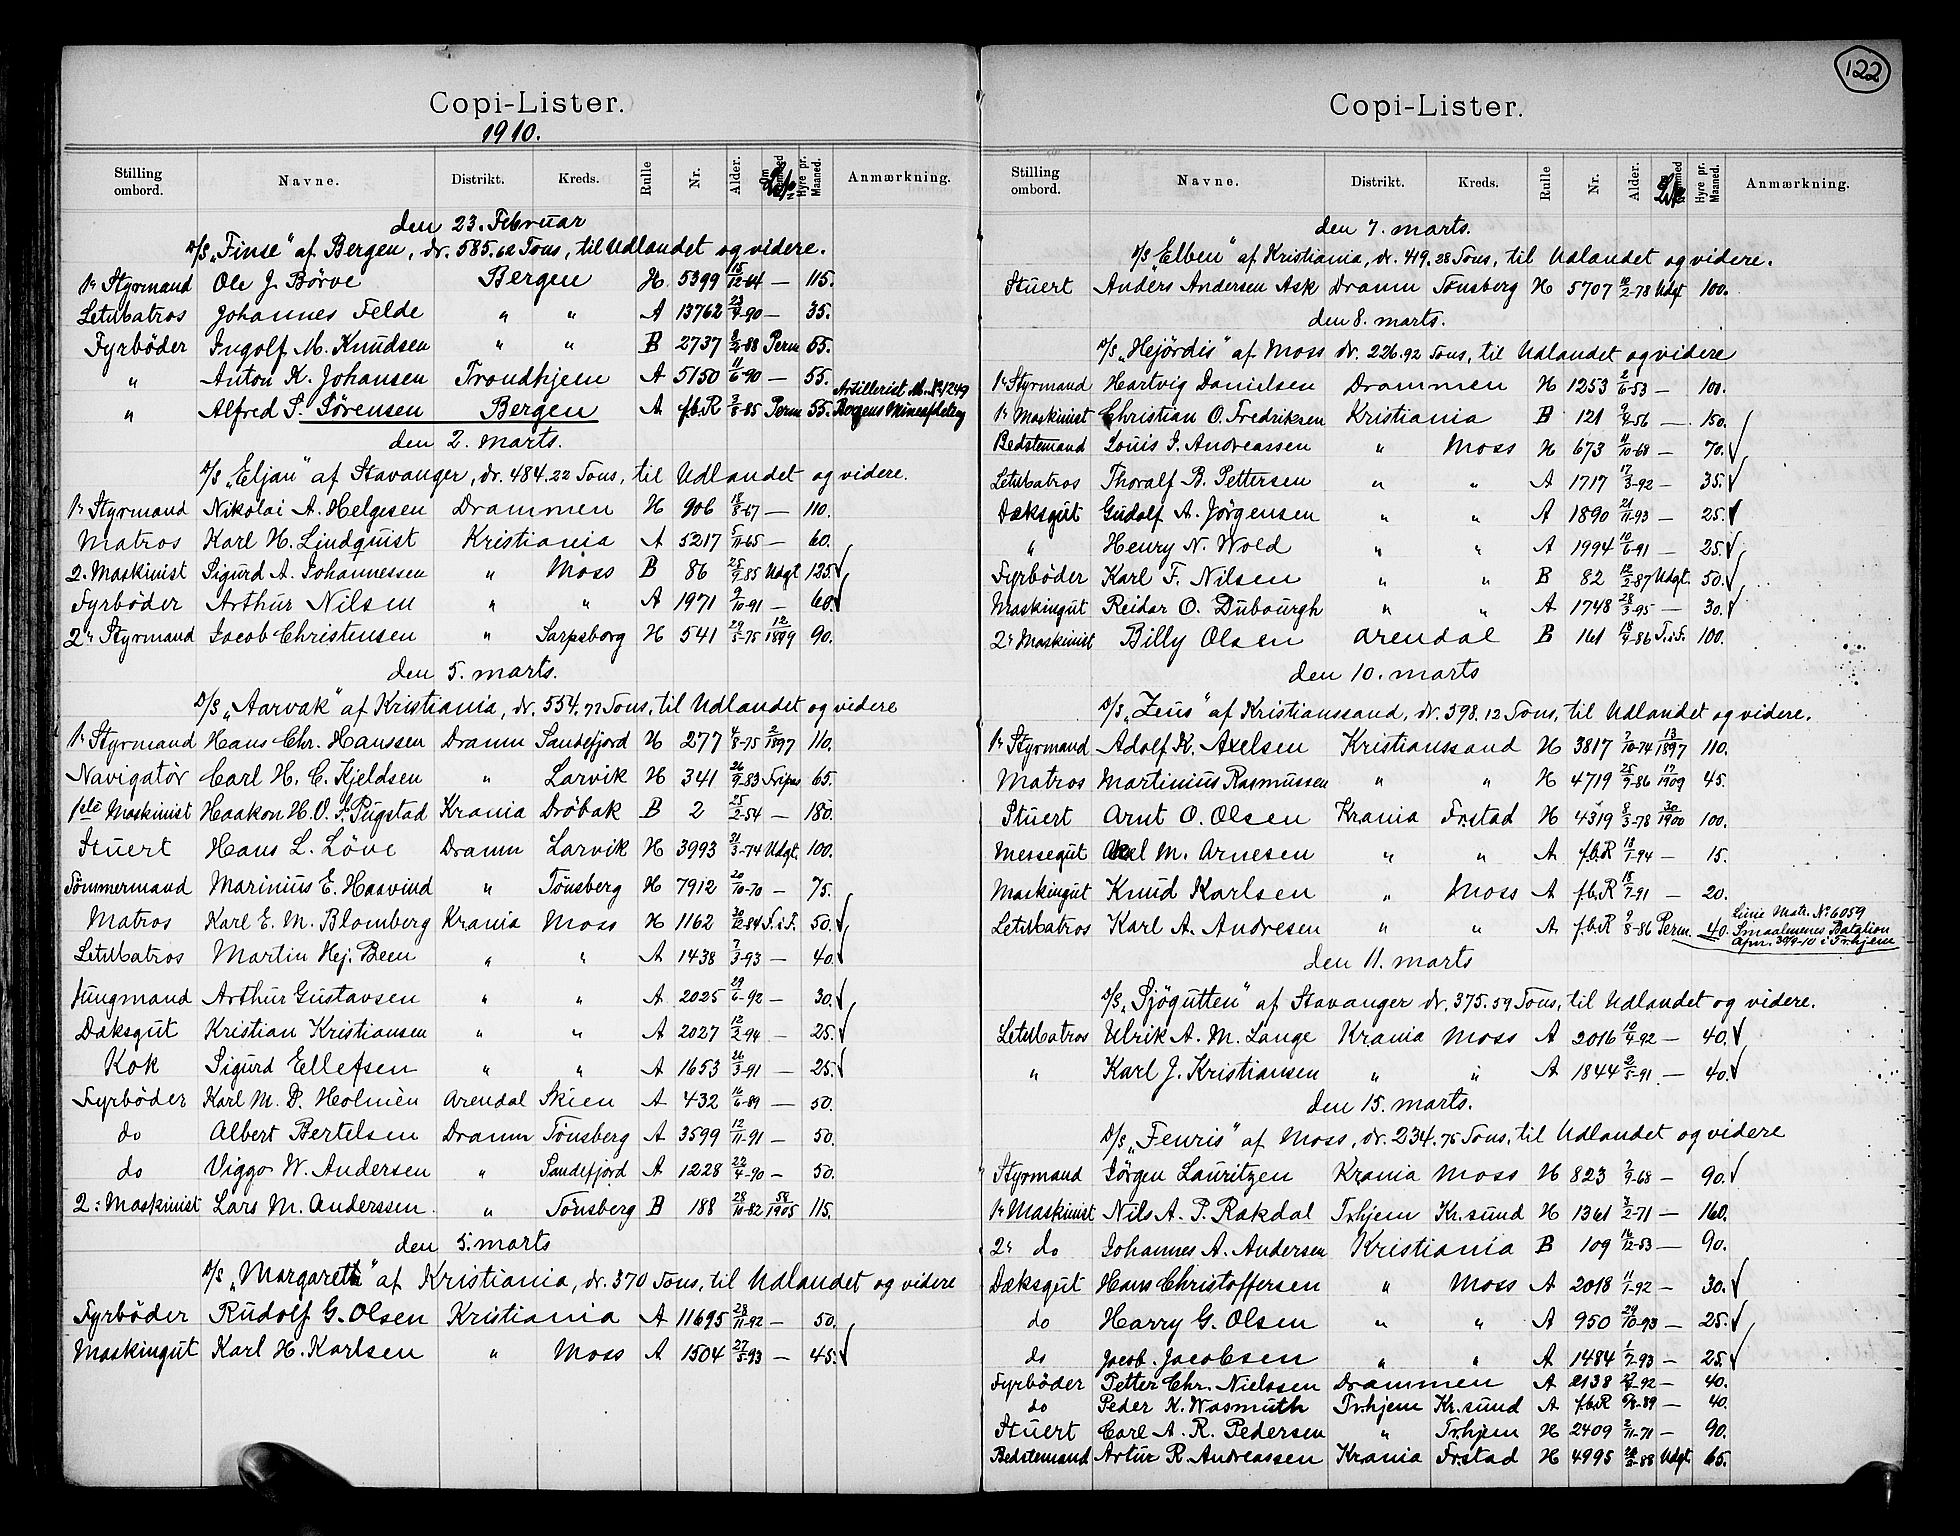 122
Copi-Lister.
1910.
Stilling ombord. Navne. Distrikt. Kreds. Rulle Nr. Alder. Hyre pr. Maaned. Anmærkning.
den 23. Februar
D/S „Finse" af Bergen, dr. 585.62 Tons, til Udlandet og videre.
1ste Styrmand Ole J. Börve Bergen H 5399 — 115.
LetMatros Johannes Felde " " A 13762 23/9-90 — 35.
Fyrböder Ingolf M. Knudsen " " B 2737 Perm 55.
" Anton K. Johansen Trondhjem A 5150 11/6-90 — 55.
" Alfred S. Sörensen Bergen A f.b.R 3/8-85 Perm 55. Artillerist Bergens Mineafdeling
den 2. marts.
D/S „Eljan" af Stavanger, dr. 484.22 Tons, til Udlandet og videre.
1ste Styrmand Nikolai A. Helgesen Drammen H 906 — 110.
Matros Karl H. Lindquist Kristiania A 5217 5/11-65 — 60.
2. Maskinist Sigurd A. Johannessen " Moss B 86 25/9-85 Udgt 125.
Fyrböder Arthur Nilsen " " A 1971 9/10-91 — 60.
2n Styrmand Jacob Christensen " Sarpsborg H 541 12/1899 90.
den 5. marts.
D/S „Aarvak" af Kristiania, dr. 554.77 Tons, til Udlandet og videre
1ste Styrmand Hans Chr. Hanssen Dramn Sandefjord H 277 4/8-75 2/1897 110.
Navigatör Carl H. C. Kjeldsen " Larvik H 341 26/9-83 Fripas 65.
1ste Maskinist Haakon H. O. S. Pugstad Krania Dröbak B 2 25/2-54 — 180.
Stuert Hans L. Löve Dramn Larvik H 3993 21/3-74 Udgt. 100.
Tömmermand Marinius E. Haavind " Tönsberg H 7912 20/10-70 — 75.
Matros Karl E. M. Blomberg Krania Moss H 1162 30/12-84 T.i.T. 50.
LetMatros Martin Hej. Been " " A 1438 7/3-93 — 40.
Jungmand Arthur Gustavsen " " A 2025 29/6-92 — 30.
Dæksgut Kristian Kristiansen " " A 2027 12/3-94 — 25.
Kok Sigurd Ellefsen " " A 1653 26/3-91 — 25.
Fyrböder Karl M. D. Holmèn Arendal Skien A 432 16/6-89 — 50.
do Albert Bertelsen Dramn Tönsberg A 3599 12/11-91 — 50.
do Viggo W. Andersen " Sandefjord A 1228 22/4-90 — 50.
2: Maskinist Lars M. Anderssen " Tönsberg B 188 28/10-82 58/1905 115.
den 5. marts
D/S „Margareth" af Kristiania, dr. 370 Tons, til Udlandet og videre
Fyrböder Rudolf G. Olsen Kristiania A 11695 28/11-92 — 50.
Maskingut Karl H. Karlsen " Moss A 1504 27/5-93 — 45.
Copi-Lister.
Stilling ombord. Navne. Distrikt. Kreds. Rulle Nr. Alder. Hyre pr. Maaned. Anmærkning.
den 7. marts.
D/S „Elben" af Kristiania, dr. 419.28 Tons, til Udlandet og videre.
Stuert Anders Andersen Ask Dramn Tönsberg H 5707 Udgt 100.
den 8. marts.
D/S „Hejördis" af Moss dr. 226.92 Tons, til Udlandet og videre
1ste Styrmand Hartvig Danielsen Drammen H 1253 2/6-53 — 100.
1ste Maskinist Christian O. Fredriksen Kristiania B 121 — 150.
Bedstemand Louis J. Andreassen " Moss H 673 11/10-68 — 70.
LetMatros Thoralf B. Pettersen " " A 1717 17/3-92 — 35.
Dæksgut Gudolf A. Jörgensen " " A 1890 21/11-93 — 25.
" Henry N. Wold " " A 1994 10/6-91 — 25.
Fyrböder Karl F. Nilsen " " B 82 12/2-87 Udgt. 50.
Maskingut Reidar O. Dubourgh " " A 1748 28/3-95 — 30.
2n Maskinist Billy Olsen Arendal B 161 18/9-86 T.i.T. 100.
den 10. marts
D/S „Zeus" af Kristianssand, dr. 398.12 Tons, til Udlandet og videre.
1ste Styrmand Adolf K. Axelsen Kristianssand H 3817 7/10-74 13/1897 110.
Matros Martinius Rasmussen " " H 4719 25/9-86 17/1909 45.
Stuert Arnt O. Olsen Krania Fr.stad H 4319 8/3-78 30/1900 100.
Messegut Axel M. Arnesen " " A f.b.R 13/1-94 — 15.
Maskingut Knud Karlsen " Moss A f.b.R 18/7-91 — 20.
LetMatros Karl A. Andresen " " A f.b.R 9/8-86 Perm. 40. Linie Matr. No 6059 Smaalenenes Bataljon i Tr.hjem
den 11. marts
D/S „Sjögutten" af Stavanger dr. 375.59 Tons, til Udlandet og videre.
LetMatros Ulrik A. M. Lange Krania Moss A 2016 10/4-92 — 40.
" Karl J. Kristiansen " " A 1844 2/5-91 — 40.
den 15. marts.
D/S „Fenris" af Moss, dr. 234.75 Tons, til Udlandet og videre
Styrmand Jörgen Lauritzen Krania Moss H 823 7/9-68 — 90.
1ste Maskinist Nils A. P. Rakdal Tr.hjem Kr.sund H 1361 3/2-71 — 160.
2n do Johannes A. Andersen Kristiania B 109 16/12-53 — 90.
Dæksgut Hans Christoffersen " Moss A 2018 11/1-92 — 30.
do Harry G. Olsen " " A 950 29/10-93 — 25.
do Jacob Jacobsen " " A 1484 1/7-93 — 25.
Fyrböder Petter Chr. Nielssen Drammen A 2138 — 40.
do Peder K. Wasmuth Tr.hjem Kr.sund A f.b.R 6/8-89 — 40.
Stuert Carl A. R. Pedersen " Tr.hjem H 2409 2/11-71 — 90.
Bedstemand Artur R. Andreassen Krania Fr.stad H 4995 Udgt 65.